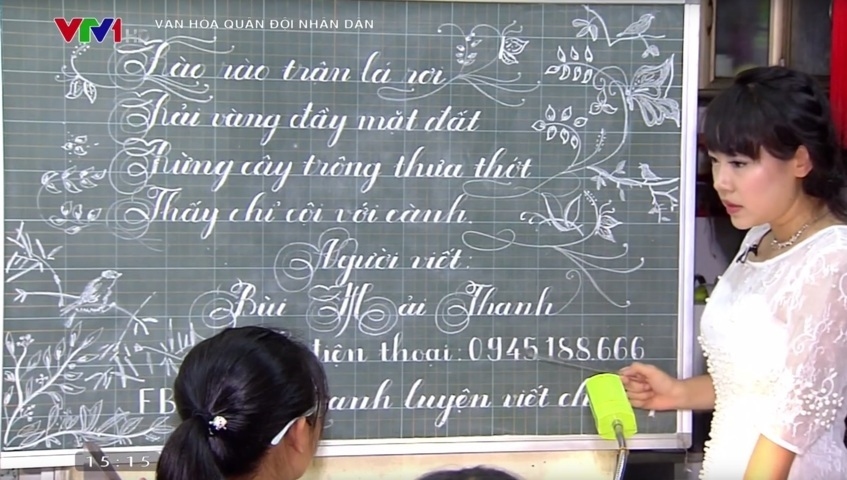 VTV1 HD VĂN HÓA QUÂN ĐỘI NHÂN DÂN
Rào rào trận lá rơi
Trải vàng đầy mặt đất
Rừng cây trông thưa thớt
Thấy chỉ cội với cành.
Người viết:
Bùi Hải Thanh
thoại: 0945.188.666
FB luyện viết
15:15